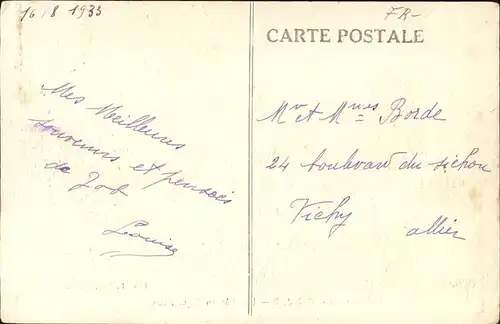 16/8 1933
Mes Meilleurs
souvenirs et pensées
de Job
Louise
FR-
CARTE POSTALE
Mr et Mmes Borde
24 boulevard du sichon
Vichy
allier